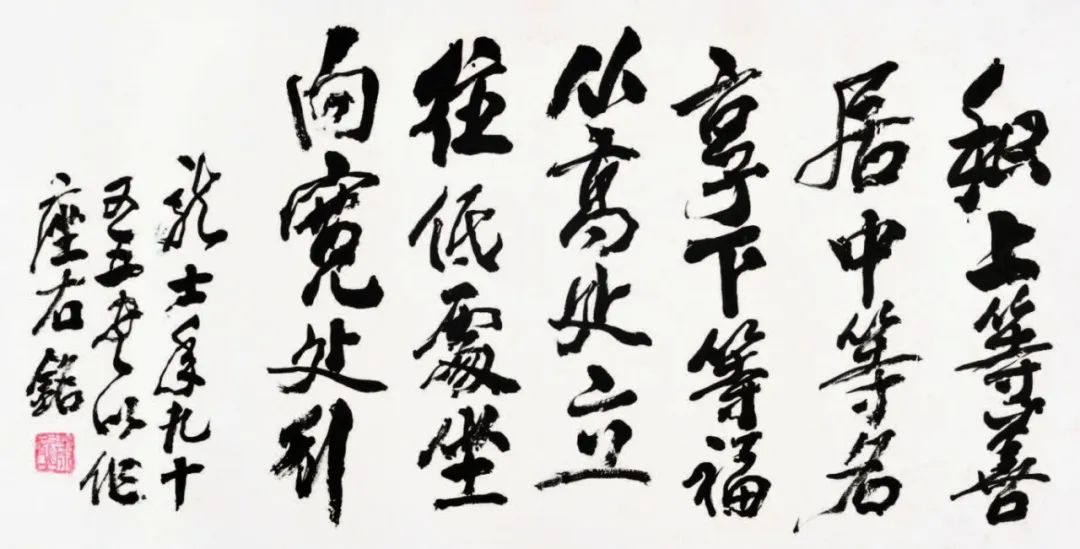 积上等善
居中等名
享下等福
从高处立
往低處坐
向寛处行
龙士年九十
五书以作
座右銘